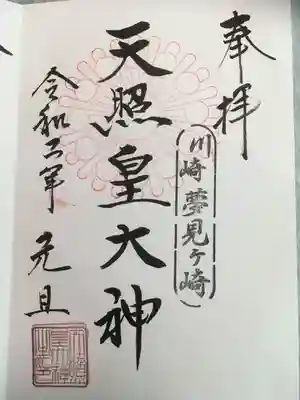 奉拝
川崎 夢見ヶ崎
天照皇大神
令和二年 元旦